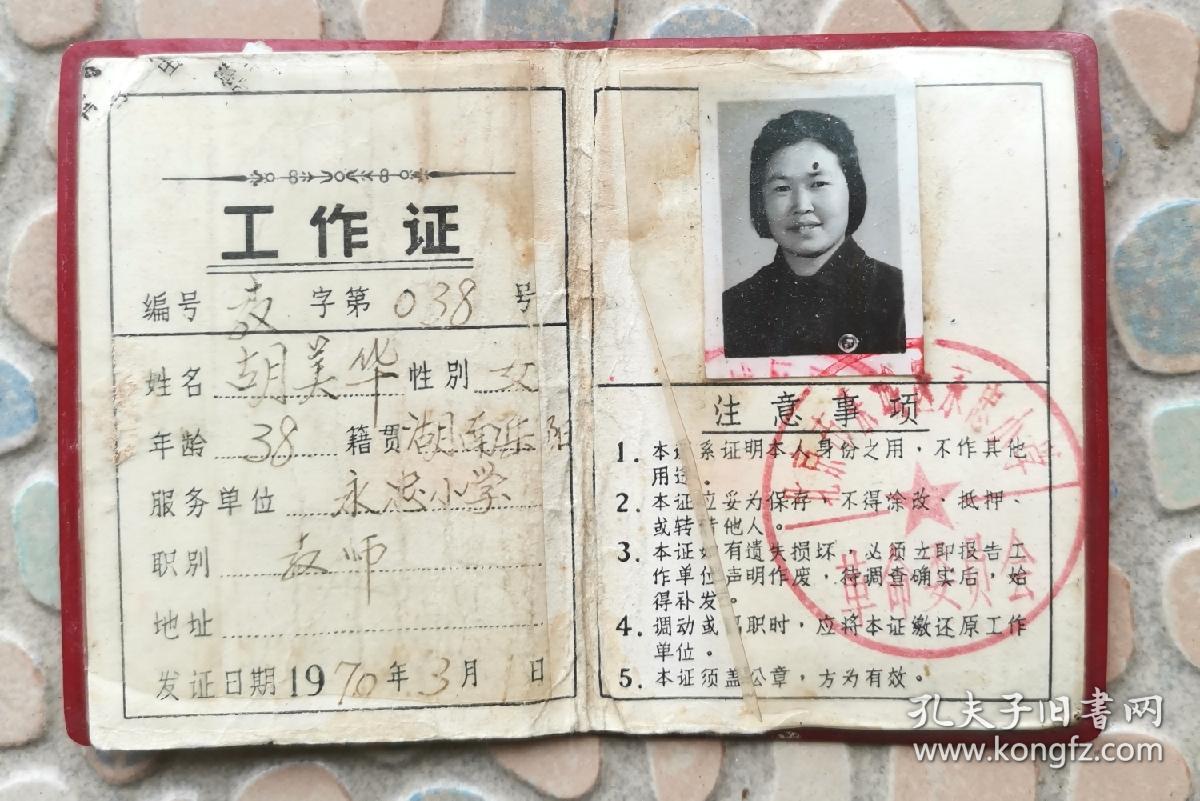 工作证
编号 教 字第 038 号
姓名 胡美华 性别 女
年龄 38 籍贯 湖南岳阳
服务单位 永忠小学
职别 教师
地址
发证日期 1970年3月1日
注意事项
1. 本 系证明本人身份之用，不作其他
用途。
2. 本证应妥为保存，不得涂改、抵押、
或转 他人。
3. 本证如有遗失损坏，必须立即报告工
作单位声明作废，待调查确实后，始
得补发。
4. 调动或 职时，应将本证缴还原工作
单位。
5. 本证须盖公章，方为有效。
革命委员会
孔夫子旧書网
www.kongfz.com